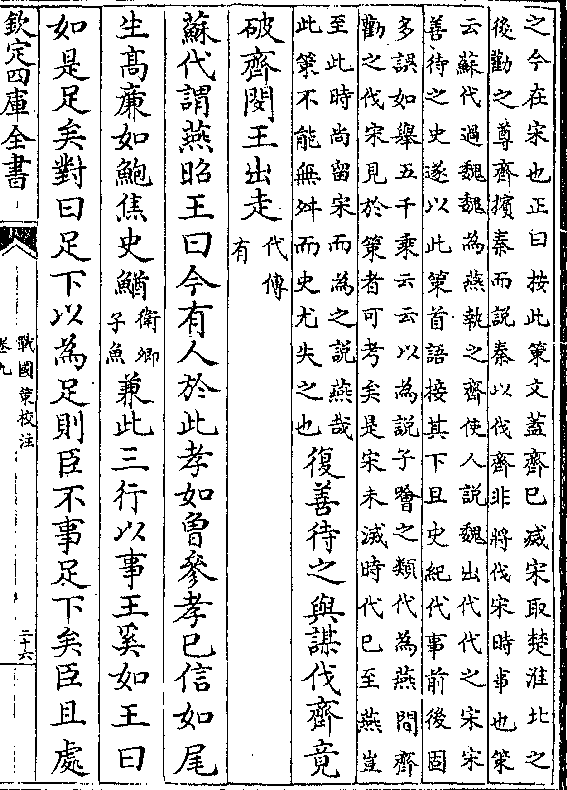 之今在宋也正曰按此策文蓋齊已滅宋取楚淮北之
後勸之尊齊擯秦而說秦以伐齊非將伐宋時事也策
云蘇代過魏魏為燕執之齊使人說魏出代代之宋宋
善待之史遂以此策首語接其下且史紀代事前後固
多誤如舉五千乘云云以為說子噲之類代為燕間齊
勸之伐宋見於策者可考矣是宋未滅時代已至燕豈
至此時尚留宋而為之說燕哉
此策不能無舛而史尤失之也
復善待之與謀伐齊竟
破齊閔王出走
代傳
有
蘇代謂燕昭王曰今有人於此孝如曾參孝已信如尾
生髙廉如鮑焦史鰌
衛卿
子魚
兼此三行以事王奚如王曰
如是足矣對曰足下以為足則臣不事足下矣臣且處
欽定四庫全書
戰國策校注
卷九
二十六